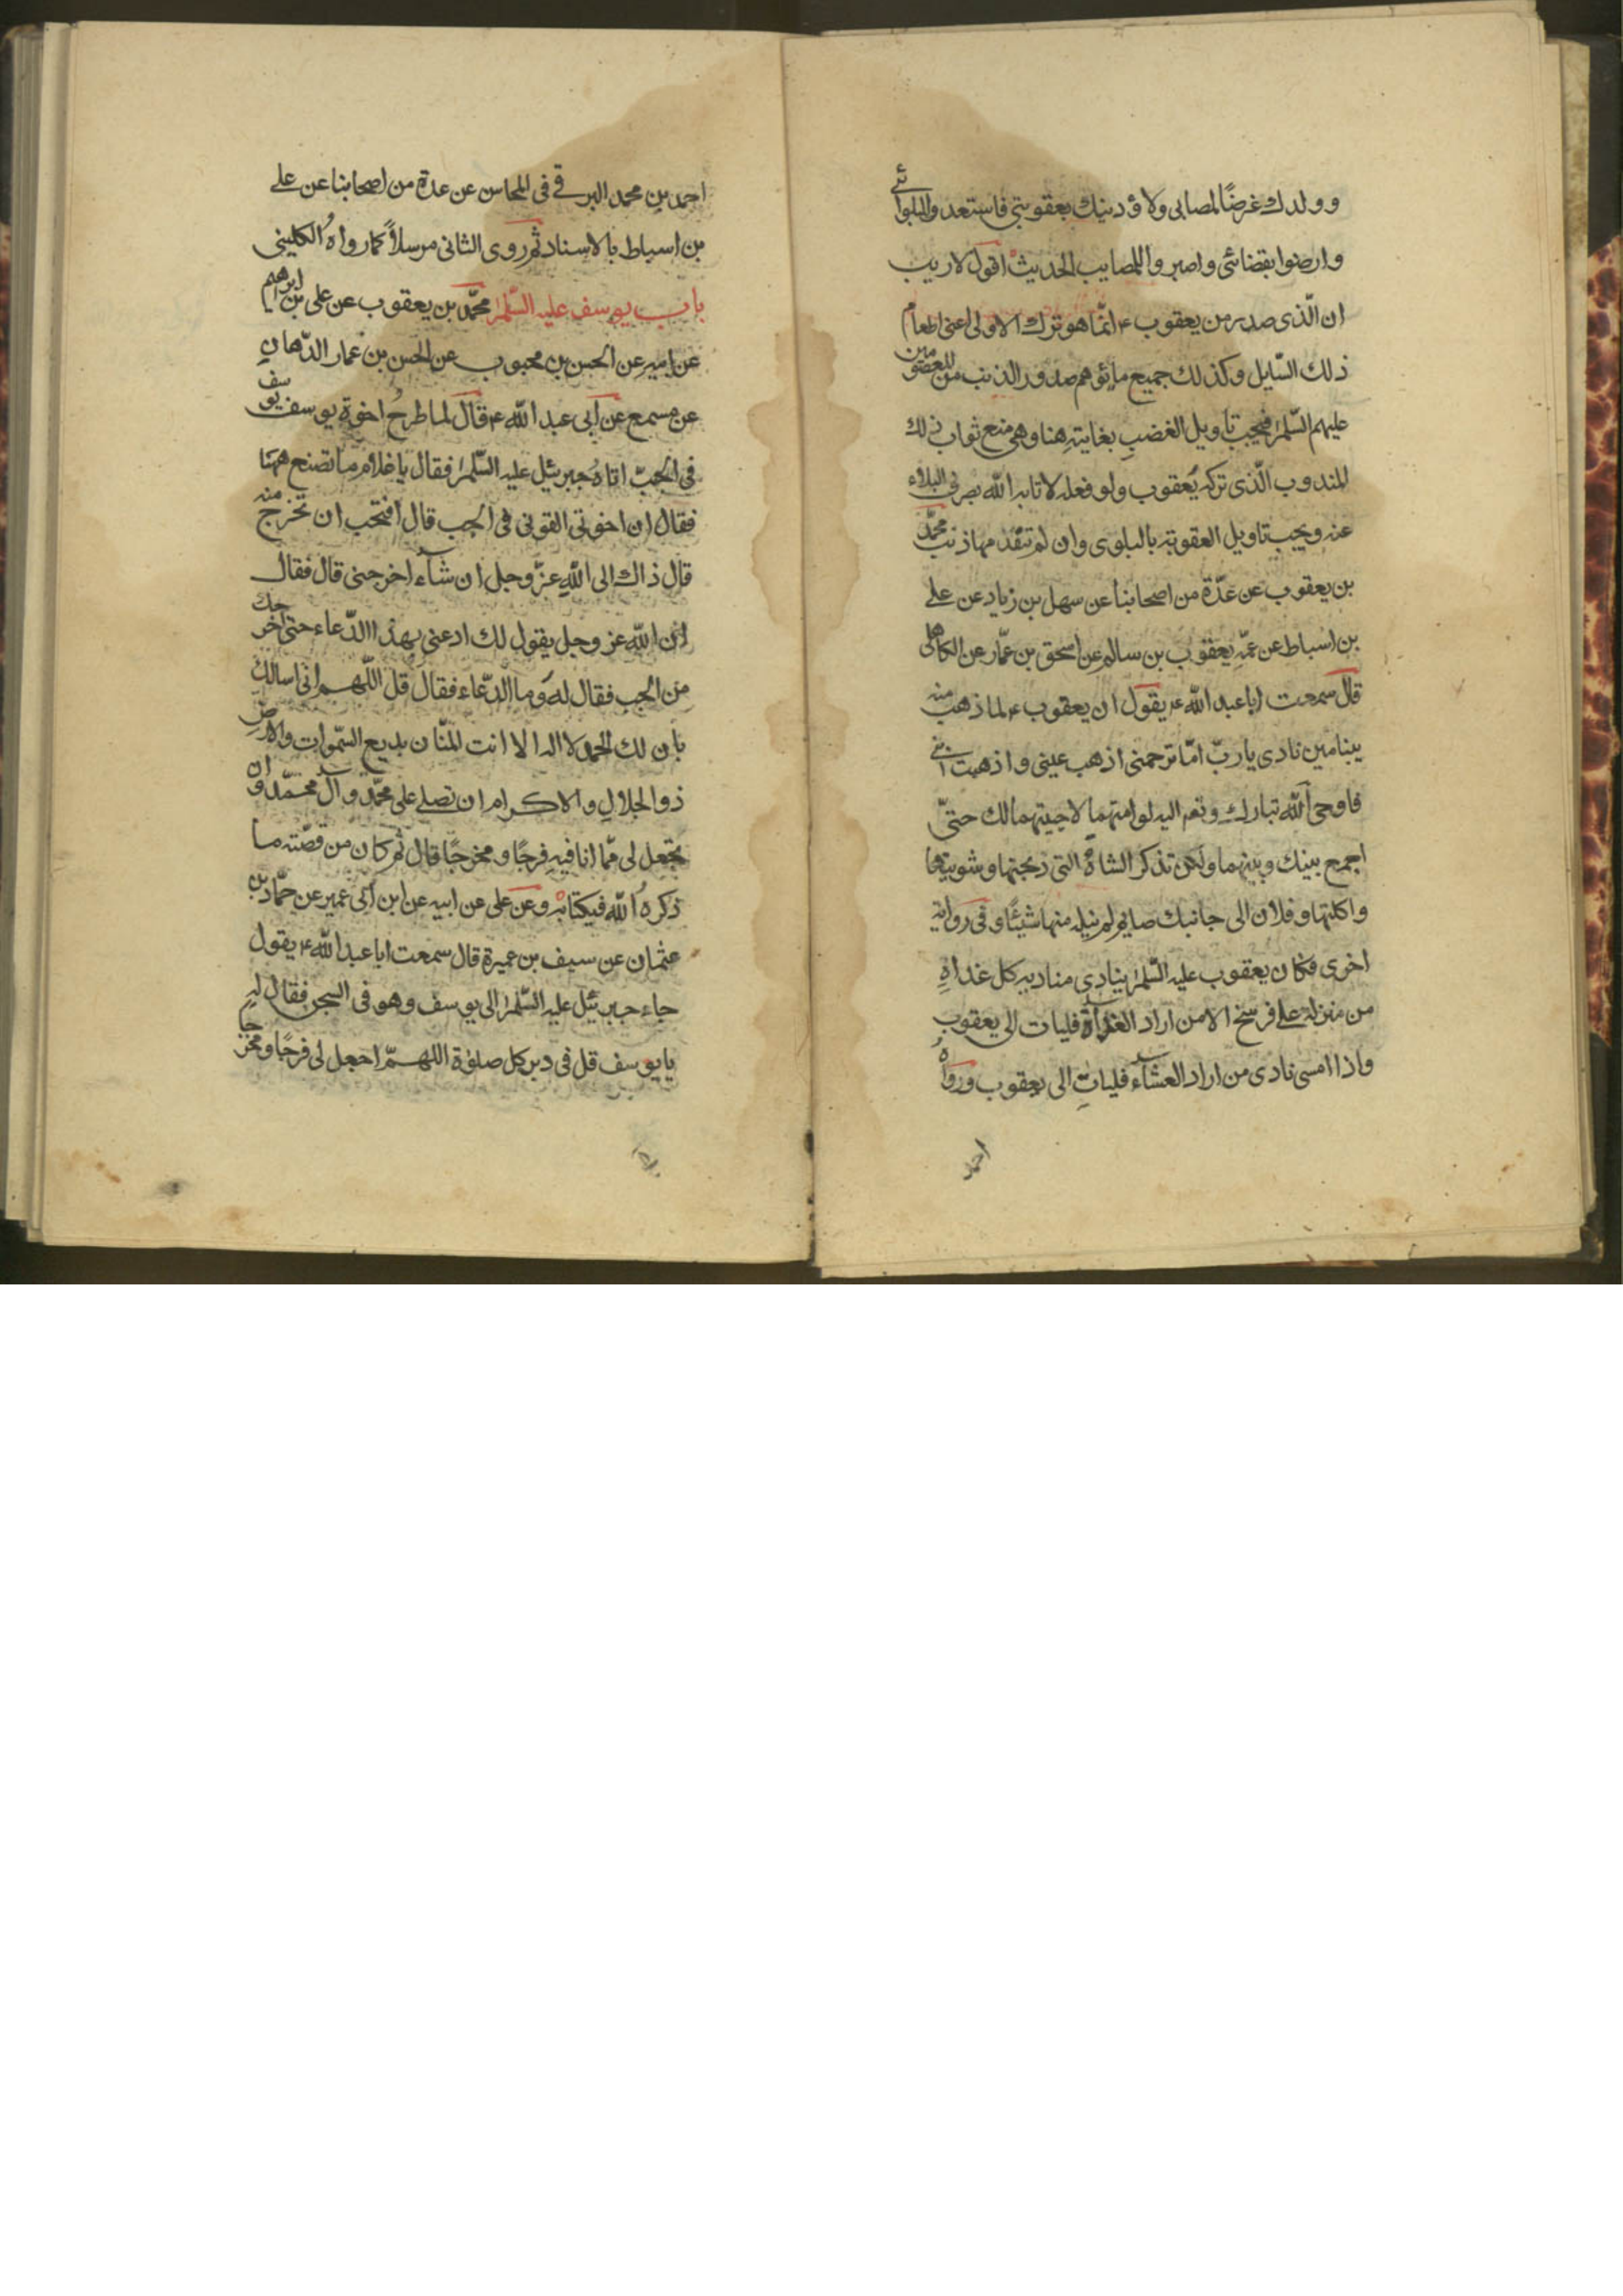 وولدك غرضًا لمصابى ولاؤدبنك بعقوبتى فاستعدوا لبلوائى
وارضوا بقضائى واصبروا للمصايب الحديث اقول لا ريب
ان الّذى صدر من يعقوب ع انّما هو ترك الاولى اعنى اطعام
ذلك السّايل وكذلك جميع ما يوهم صدور الذنب من المعصومين
عليهم السّلم فيجب تاويل الغضب بغايته هنا وهى منع ثواب ذلك
المندوب الّذى تركه يعقوب ولو فعله لاثابه الله بصرف البلاء
عنه ويجب تاويل العقوبة بالبلوى وان لم يتقدمها ذنب محمّد
بن يعقوب عن عدّة من اصحابنا عن سهل بن زياد عن على
بن اسباط عن عمّه يعقوب بن سالم عن اسحق بن عمّار عن الكاهلى
قال سمعت ابا عبد الله ع يقول ان يعقوب ع لما ذهب منه
بنيامين نادى يا ربّ امّا ترحمنى اذهب عينى واذهبت ابنى
فاوحى الله تبارك وتعم اليه لو امتهما لاحييتهما لك حتّى
اجمع بينك وبينهما ولكن تذكر الشاة التى ذبحتها وشويتها
واكلتها وفلان الى جانبك صايم لم نيله منها شيئًا وفى رواية
اخرى فكان يعقوب عليه السّلم ينادى مناديه كل غداة
من منزله على فرسخ الا من اراد الغداء فليات الى يعقوب
واذا امسى نادى من اراد العشاء فليات الى يعقوب ورواه
احمد
احمد بن محمد البرقى فى المحاسن عن عدة من اصحابنا عن على
بن اسباط بالاسناد ثم روى الثانى مرسلاً كما رواه الكلينى
باب يوسف عليه السّلم محمّد بن يعقوب عن على بن ابرهيم
عن ابيه عن الحسن بن محبوب عن الحسن بن عمار الدّهان
عن مسمع عن أبى عبد الله ع قال لما طرح اخوة يوسف يوسف
فى الجبّ اتاه جبرئيل عليه السّلم فقال يا غلام ما تصنع ههنا
فقال ان اخوتى القونى فى الجب قال افتحب ان تخرج منه
قال ذاك الى الله عزّ وجل ان شاء اخرجنى قال فقال
ان الله عز وجل يقول لك ادعنى بهذا الدّعاء حتى اخرجك
من الجب فقال له وما الدّعاء فقال قل اللّهم انى اسالك
بان لك الحمد لا اله الا انت المنّان بديع السّموات والارض
ذو الجلال والاكرام ان تصلى على محمّد وآل محمّد وان
تجعل لى ممّا انا فيه فرجًا ومخرجًا قال ثم كان من قصّته ما
ذكره الله فى كتابه وعن على عن ابيه عن ابن أبى عمير عن حمّاد بن
عثمان عن سيف بن عميرة قال سمعت ابا عبد الله ع يقول
جاء جبرئيل عليه السّلم الى يوسف وهو فى السجن فقال له
يا يوسف قل فى دبر كل صلوة اللهمّ اجعل لى فرجًا ومخرجا